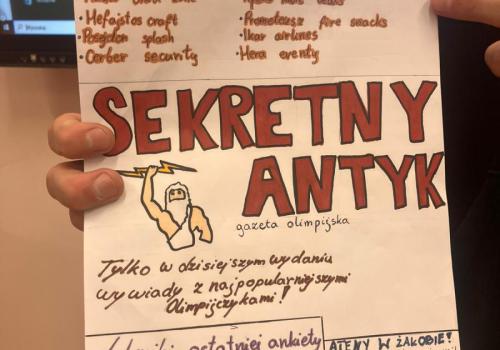 • Hefajstos craft
• Posejdon splash
• Cerber security
• Prometeusz fire snacks
• Ikar airlines
• Hera eventy
SEKRETNY
ANTYK
gazeta olimpijska
Tylko w dzisiejszym wydaniu
wywiady z najpopularniejszymi
Olimpijczykami!
ostatniej ankiety
ATENY W ŻAŁOBIE!